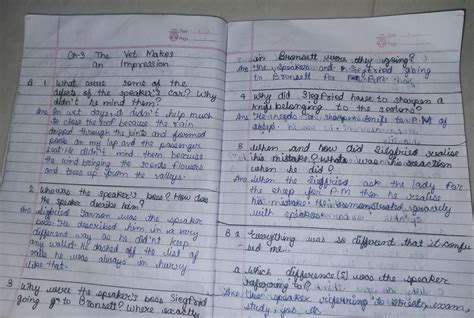 Ch-3 The Vet Makes
an Impression
B 1. What were some of the
defects of the speaker's car? Why
didn't he mind them?
Ans In wet days it didn't help much
to close the roof because the rain
dripped through the joints and formed
pools on my lap and the passenger
seat. He didn't mind them because
the wind bringing the scents flowers
and trees up from the valleys.
2. Who was the speaker's boss? How does
the speaker describe him?
Ans Siegfried Farnon was the speaker
boss. He described him in a very
different way as he didn't keep
any wallet. He dashed off the list of
calls he was always in hurry
like that.
3 Why were the speaker's boss Siegfried
going to Bronsett? Where exactly
in Bronsett were they going?
Ans The speaker and Siegfried going
to Bronsett for P.M
4 Why did Siegfried have to sharpen a
knife belonging to the senior?
Ans He needs sharpen knife to P.M of
sheep.
5 When and how did Siegfried realise
his mistake? What was his reaction
when he did?
Ans When the Siegfried ask the lady for
the sheep for P.M then he realise
his mistake. He remonstrated gravely
with
B 1 Everything was so different that it confu
-sed me.
a. Which difference(s) was the speaker
referring to?
Ans The speaker referring to
study,